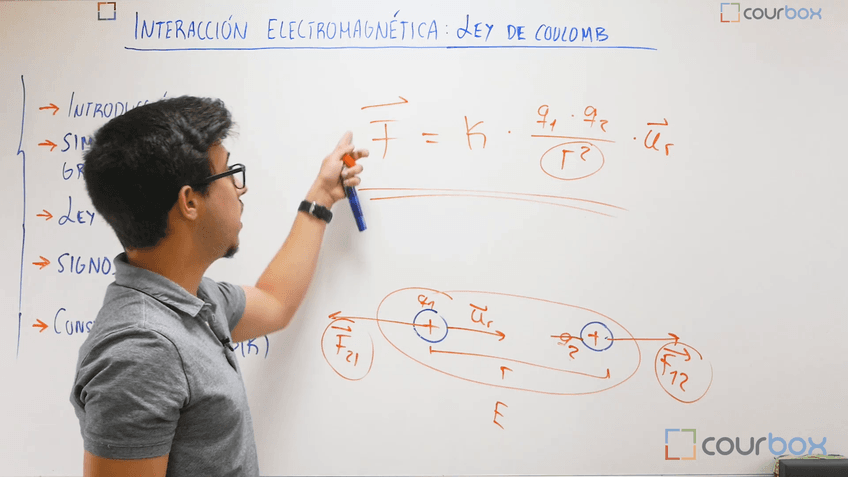 courbox
INTERACCIÓN ELECTROMAGNÉTICA: LEY DE COULOMB
→ INTRODUCCIÓ
→ SIM
GR
→ LEY
→ SIGNO
→ CONS
(K)
F⃗ = K · q₁ · q₂ / r² · u⃗ᵣ
q₁ u⃗ᵣ q₂
+ +
F⃗₂₁ r F⃗₁₂
E
courbox